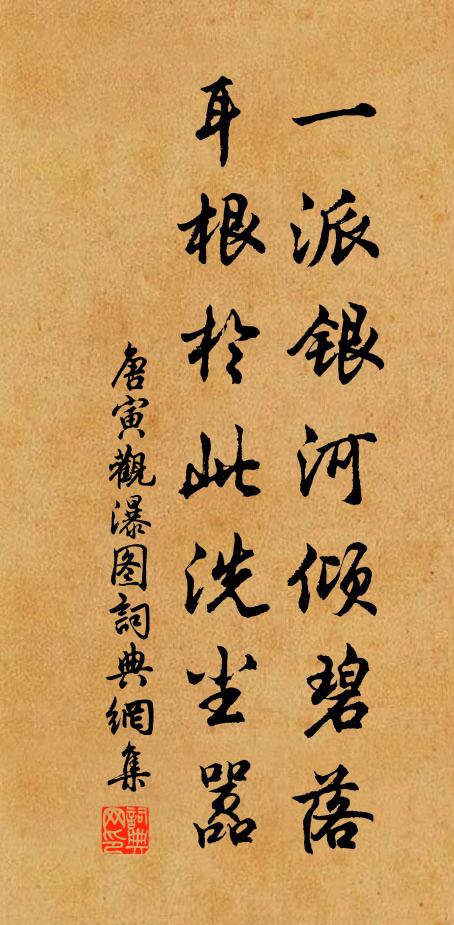 一派銀河傾碧落
耳根於此洗尘嚣
唐寅觀瀑图詞典網集
詞典网印